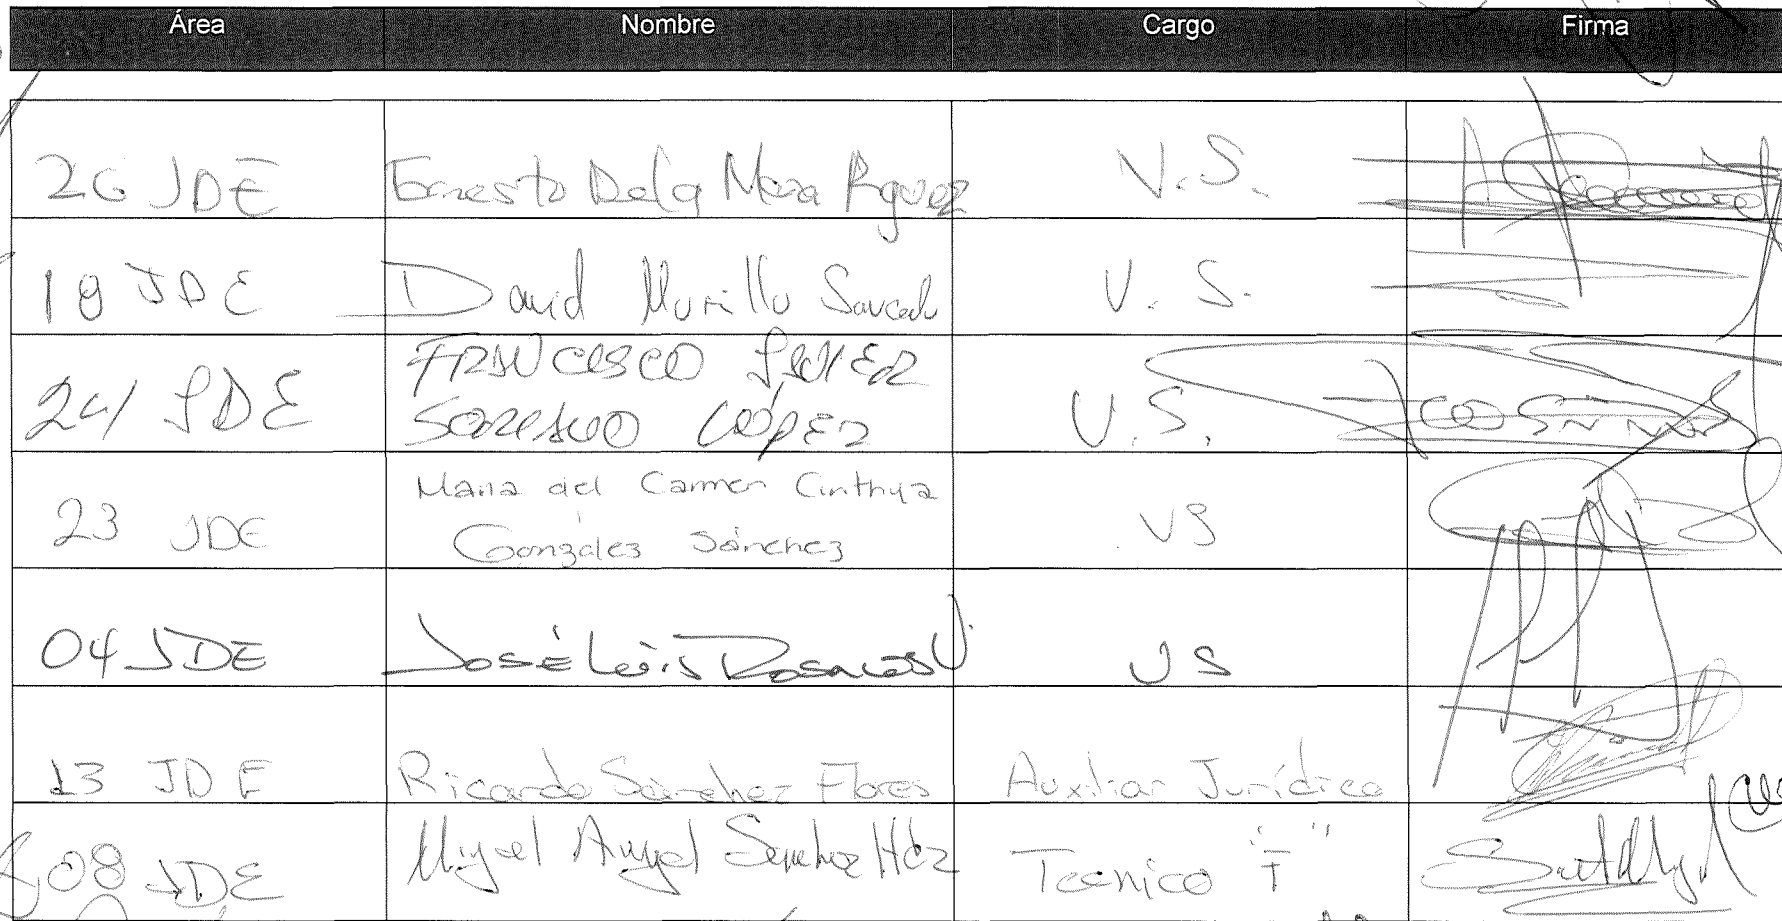 Área Nombre Cargo Firma
26 JDE Ernesto De la Mora Rguez V.S.
18 JDE David Murillo Saucedo V.S.
FRANCISCO JAVIER
24 JDE LÓPEZ V.S.
Maria del Carmen Cinthya
23 JDE González Sánchez VS
04 JDE José Luis Rosales V. VS
13 JDE Ricardo Sánchez Flores Auxiliar Jurídico
08 JDE Miguel Angel Sanchez Hdz Tecnico "T"